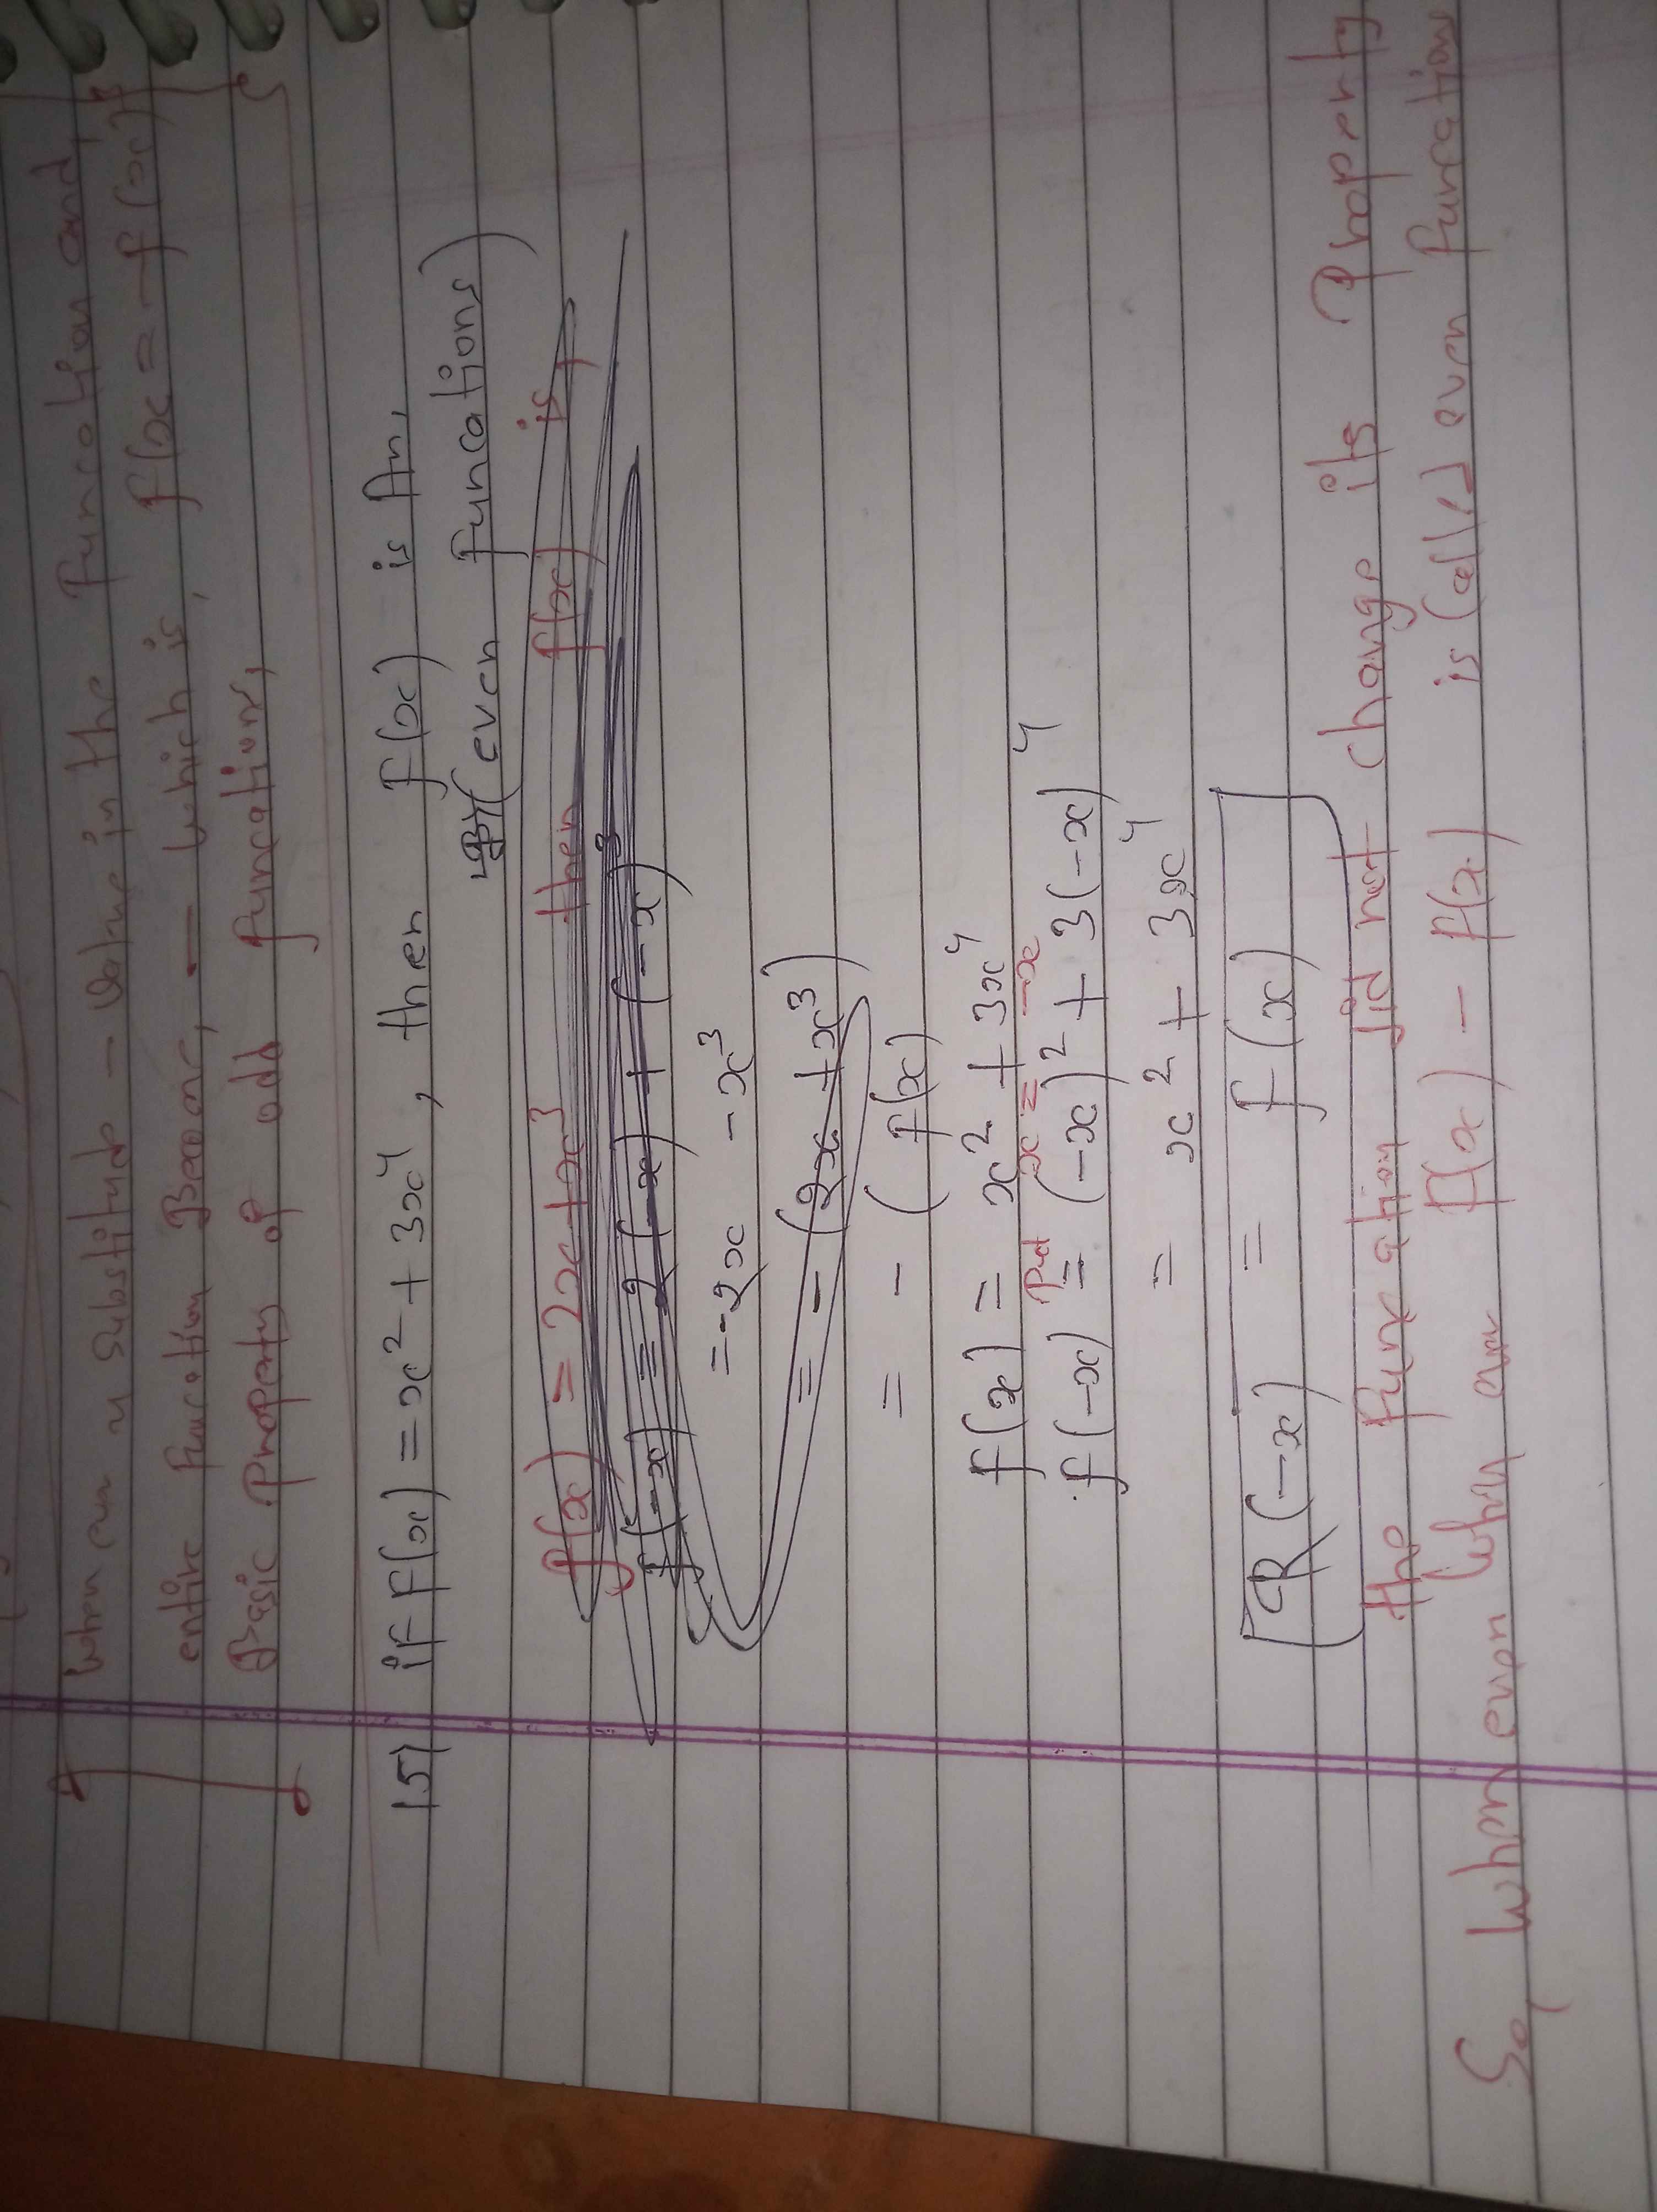 when em u substitude - value in the funcation and,
entire function Become, - which is, f(x = -f(x)
Basic Property of odd funcations,
15) if f(x) = x² + 3x⁴, then f(x) is An,
(even funcations)
f(x) = 2x + x³ then f(x) is,
f(-x) = 2(-x) + (-x)³
= -2x - x³
= - (2x + x³)
= - (f(x)
f(x) = x² + 3x⁴
Put x = -x
f(-x) = (-x)² + 3(-x)⁴
= x² + 3x⁴
f(-x) = f(x)
the funcation did not change its Property
So, when even why em f(x) - f(x) is called even funcation